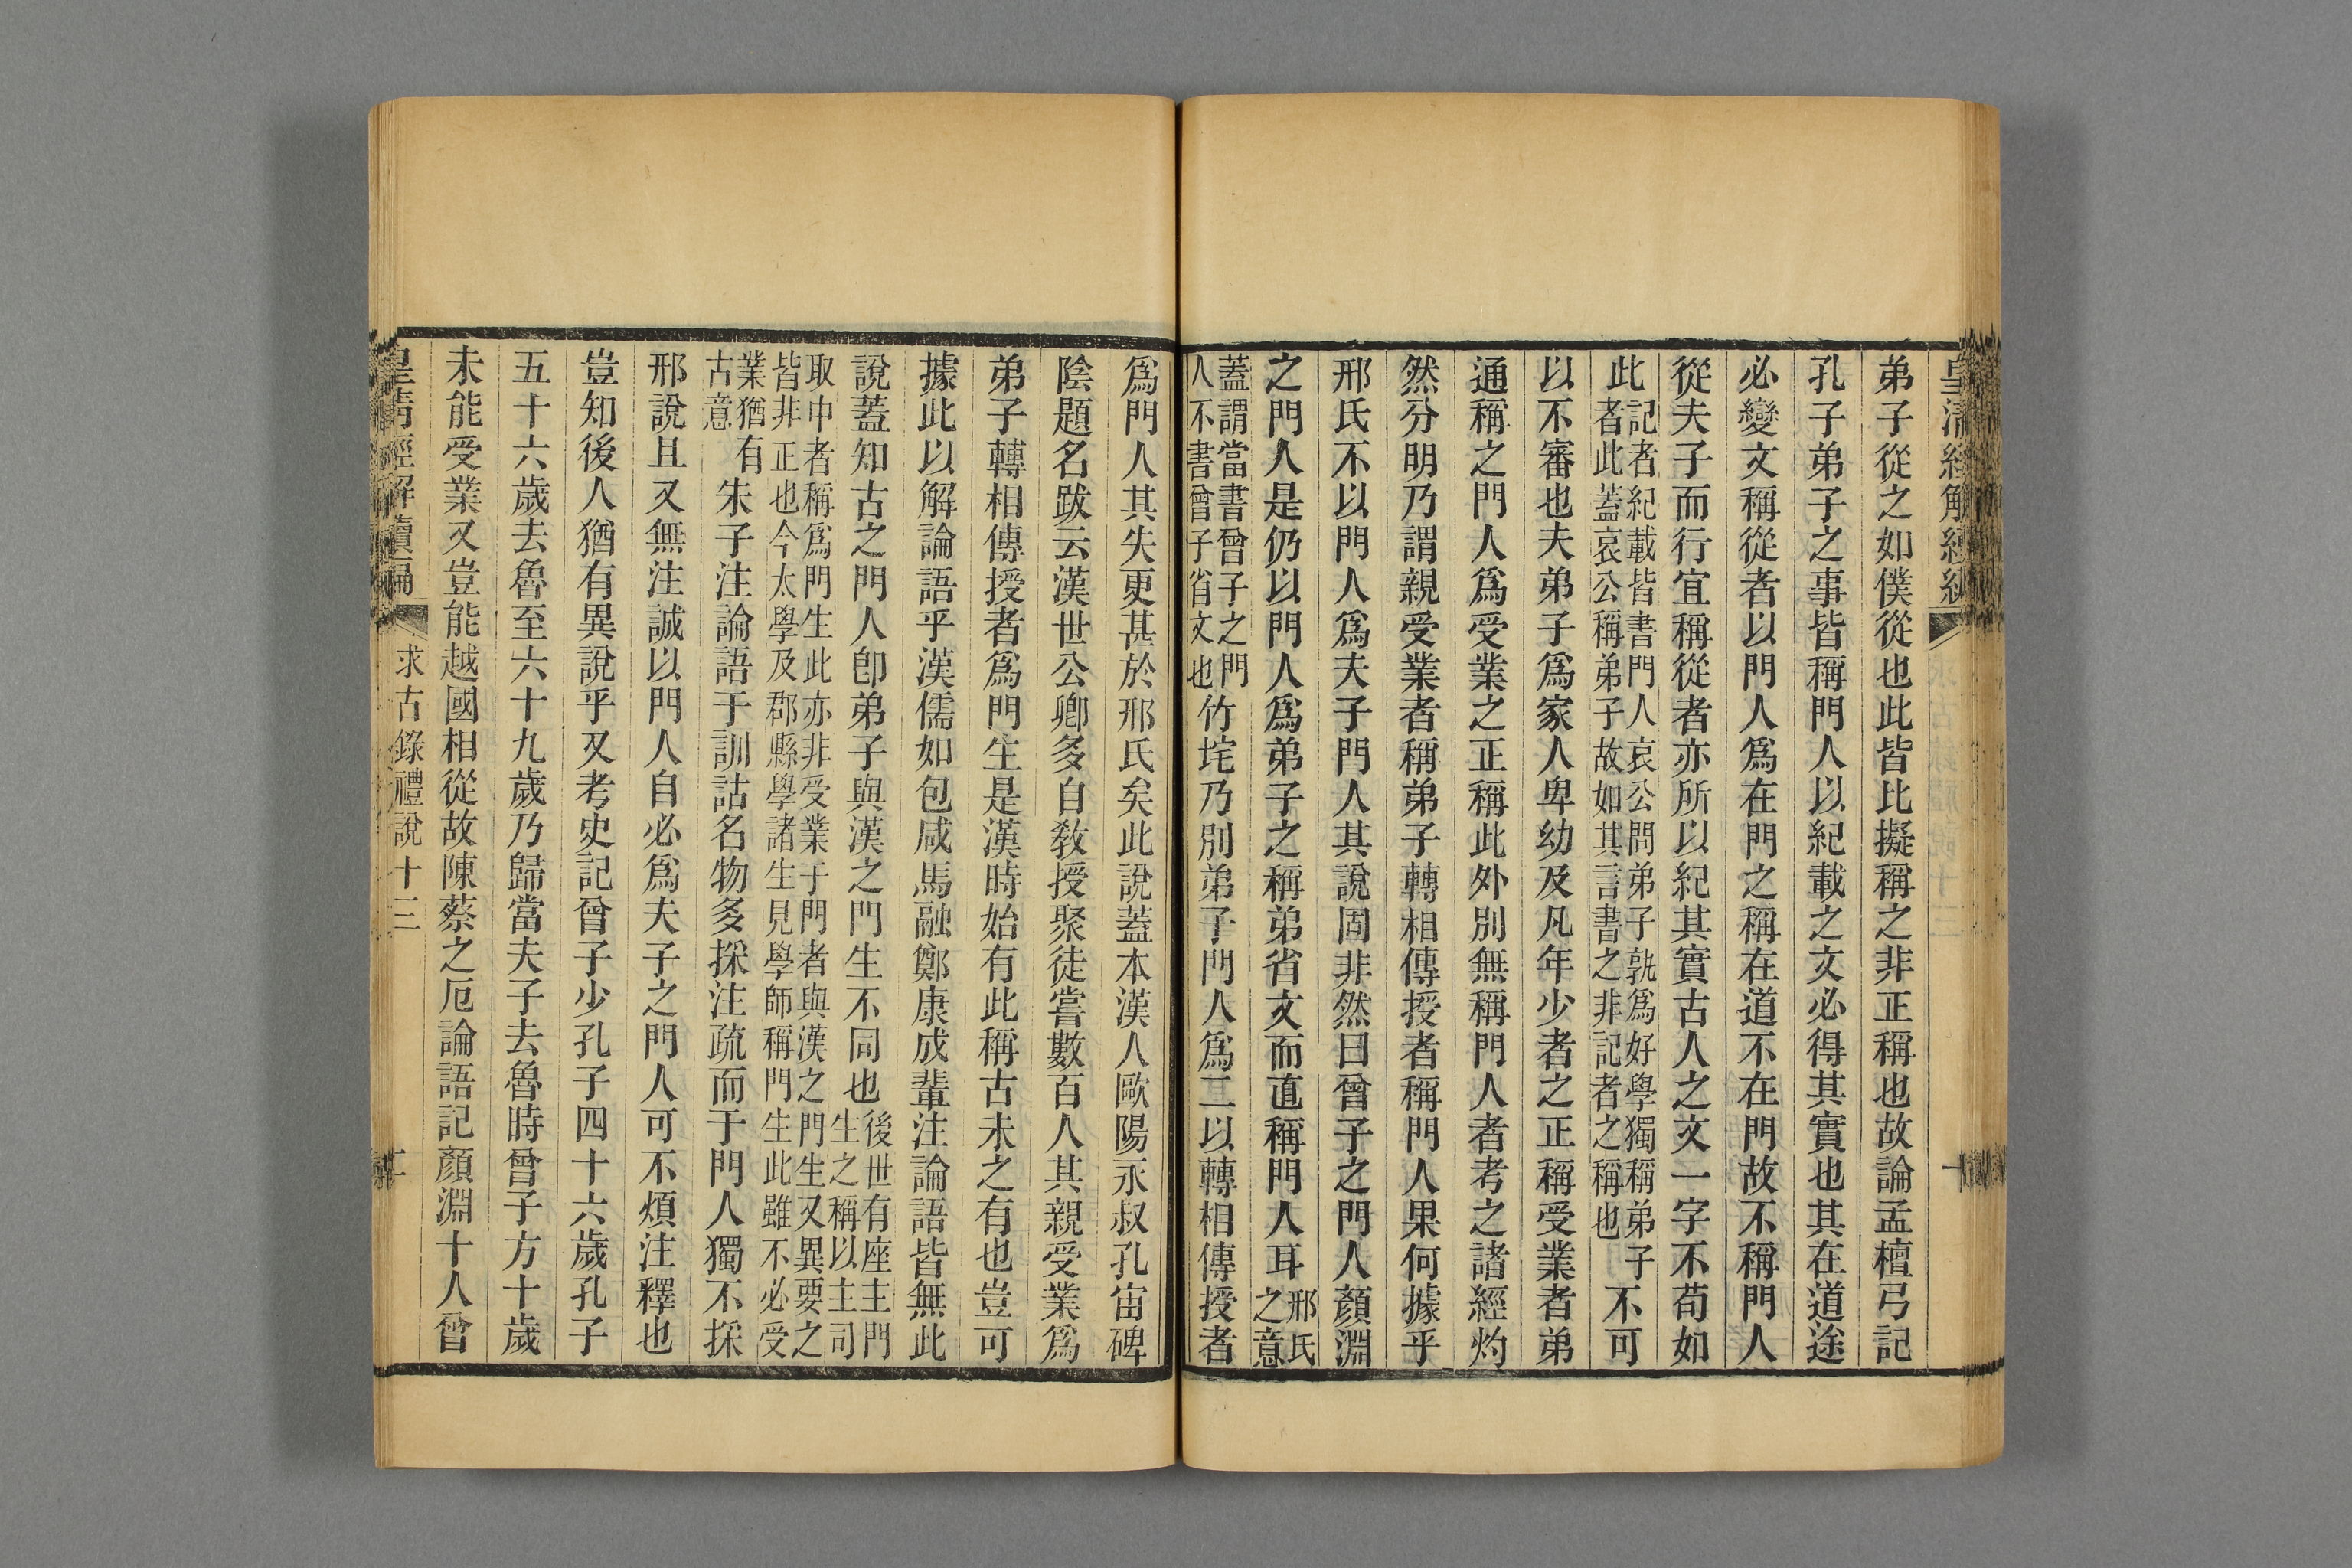 皇清經解續編
弟子從之如僕從也此皆比擬稱之非正稱也故論孟檀弓記
孔子弟子之事皆稱門人以紀載之文必得其實也其在道途
必變文稱從者以門人爲在門之稱在道不在門故不稱門人
從夫子而行宜稱從者亦所以紀其實古人之文一字不苟如
此記者紀載皆書門人哀公問弟子孰爲好學獨稱弟子者此蓋哀公稱弟子故如其言書之非記者之稱也不可
以不審也夫弟子爲家人卑幼及凡年少者之正稱受業者弟
通稱之門人爲受業之正稱此外別無稱門人者考之諸經灼
然分明乃謂親受業者稱弟子轉相傳授者稱門人果何據乎
邢氏不以門人爲夫子門人其說固非然曰曾子之門人顏淵
之門人是仍以門人爲弟子之稱弟省文而直稱門人耳邢氏之意
蓋謂當書曾子之門人不書曾子省文也竹垞乃別弟子門人爲二以轉相傳授者
爲門人其失更甚於邢氏矣此說蓋本漢人歐陽永叔孔宙碑
陰題名跋云漢世公卿多自敎授聚徒嘗數百人其親受業爲
弟子轉相傳授者爲門生是漢時始有此稱古未之有也豈可
據此以解論語乎漢儒如包咸馬融鄭康成輩注論語皆無此
說蓋知古之門人卽弟子與漢之門生不同也後世有座主門生之稱以主司
取中者稱爲門生此亦非受業于門者與漢之門生又異要之皆非正也今太學及郡縣學諸生見學師稱門生此雖不必受
業猶有古意朱子注論語于訓詁名物多採注疏而于門人獨不採
邢說且又無注誠以門人自必爲夫子之門人可不煩注釋也
豈知後人猶有異說乎又考史記曾子少孔子四十六歲孔子
五十六歲去魯至六十九歲乃歸當夫子去魯時曾子方十歲
未能受業又豈能越國相從故陳蔡之厄論語記顏淵十人曾
皇清經解續編 求古錄禮說十三 二